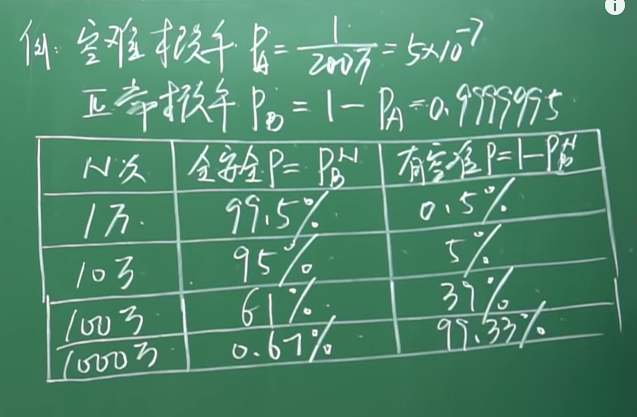 例: 空难概率 P_A = 1/200万 = 5×10⁻⁷
正常概率 P_B = 1 - P_A = 0.9999995
N次 全安全P = P_B^N 有空难P = 1 - P_B^N
1万. 99.5% 0.5%
10万 95% 5%
100万 61% 39%
1000万 0.67% 99.33%